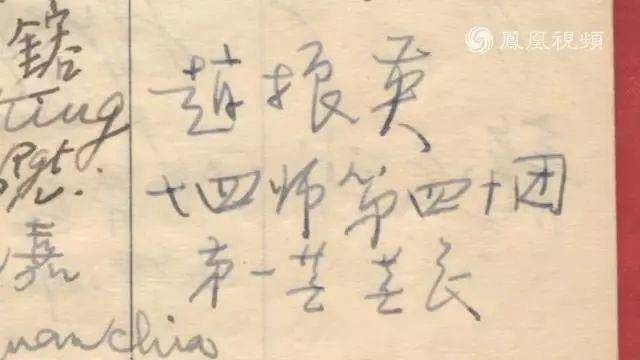 鳳凰視頻
趙振英
十四师第四十团
第一营营长
ting
Rgt.
嘉